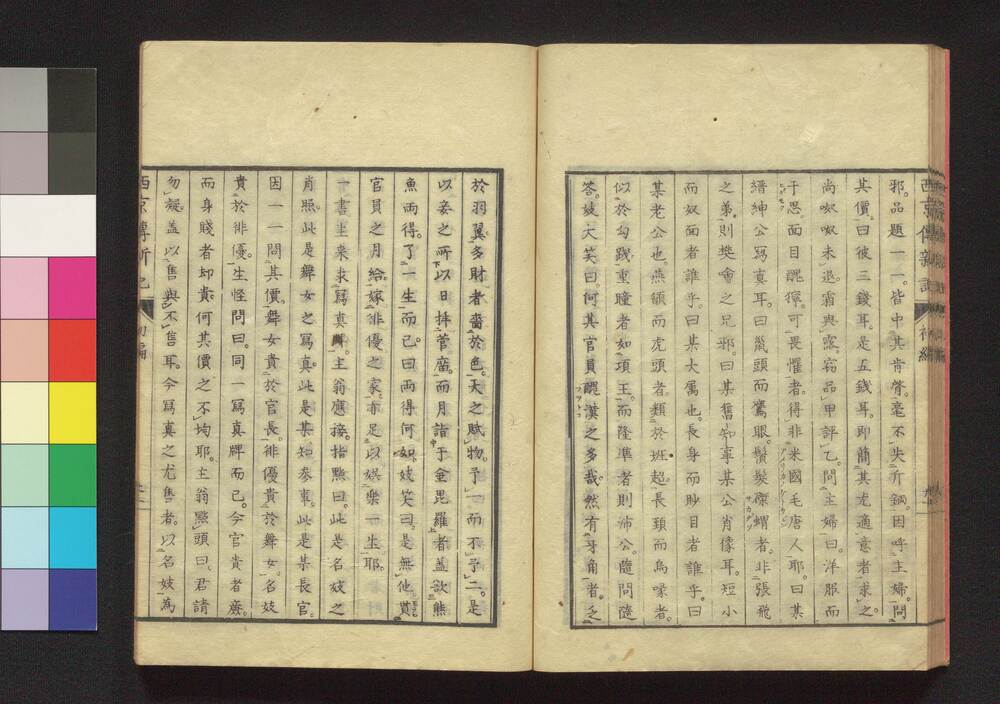 邪。品題一一。皆中其肯綮。毫不失斤鈿。因呼主婦。問
其價。曰彼三錢耳。是五錢耳。即簡其尤適意者求之。
尚呶呶未退。霜與露。窃品甲評乙。問主婦曰。洋服而
于思。面目醜獰。可畏懼者。得非米國毛唐人耶。曰某
縉紳公寫真耳。曰鼠頭而鷹眼。鬚髮磔蝟者。非張飛
之弟。則樊噲之兄邪。曰某舊知事某公肖像耳。短小
而奴面者誰乎。曰某大属也。長身而眇目者誰乎。曰
某老公也。燕頷而虎頭者。類於班超。長頸而烏喙者。
似於勾踐。重瞳者如項王。而隆準者則沛公。隨問隨
答。妓大笑曰。何其官員醜漢之多哉。然有牙角者。乏
於羽翼。多財者嗇於色。天之賦物。予一而不予二。是
以妾之所以日拝菅廟。而月詣于金毘羅者。蓋欲熊
魚兩得。了一生而已。曰兩得何如。妓笑曰。是無他。貰
官員之月給。嫁俳優之家。亦足以娯樂一生耶。
一書生来求寫真牌。主翁應接。指點曰。此是名妓之
肖照。此是舞女之寫真。此是某知参事。此是某長官。
因一一問其價。舞女貴於官長。俳優貴於舞女。名妓
貴於俳優。生怪問曰。同一寫真牌而已。今官貴者廉。
而身賤者却貴。何其價之不均耶。主翁點頭曰。君請
勿凝。蓋以售與不售耳。今寫真之尤售者。以名妓為
西京傳新記 初編